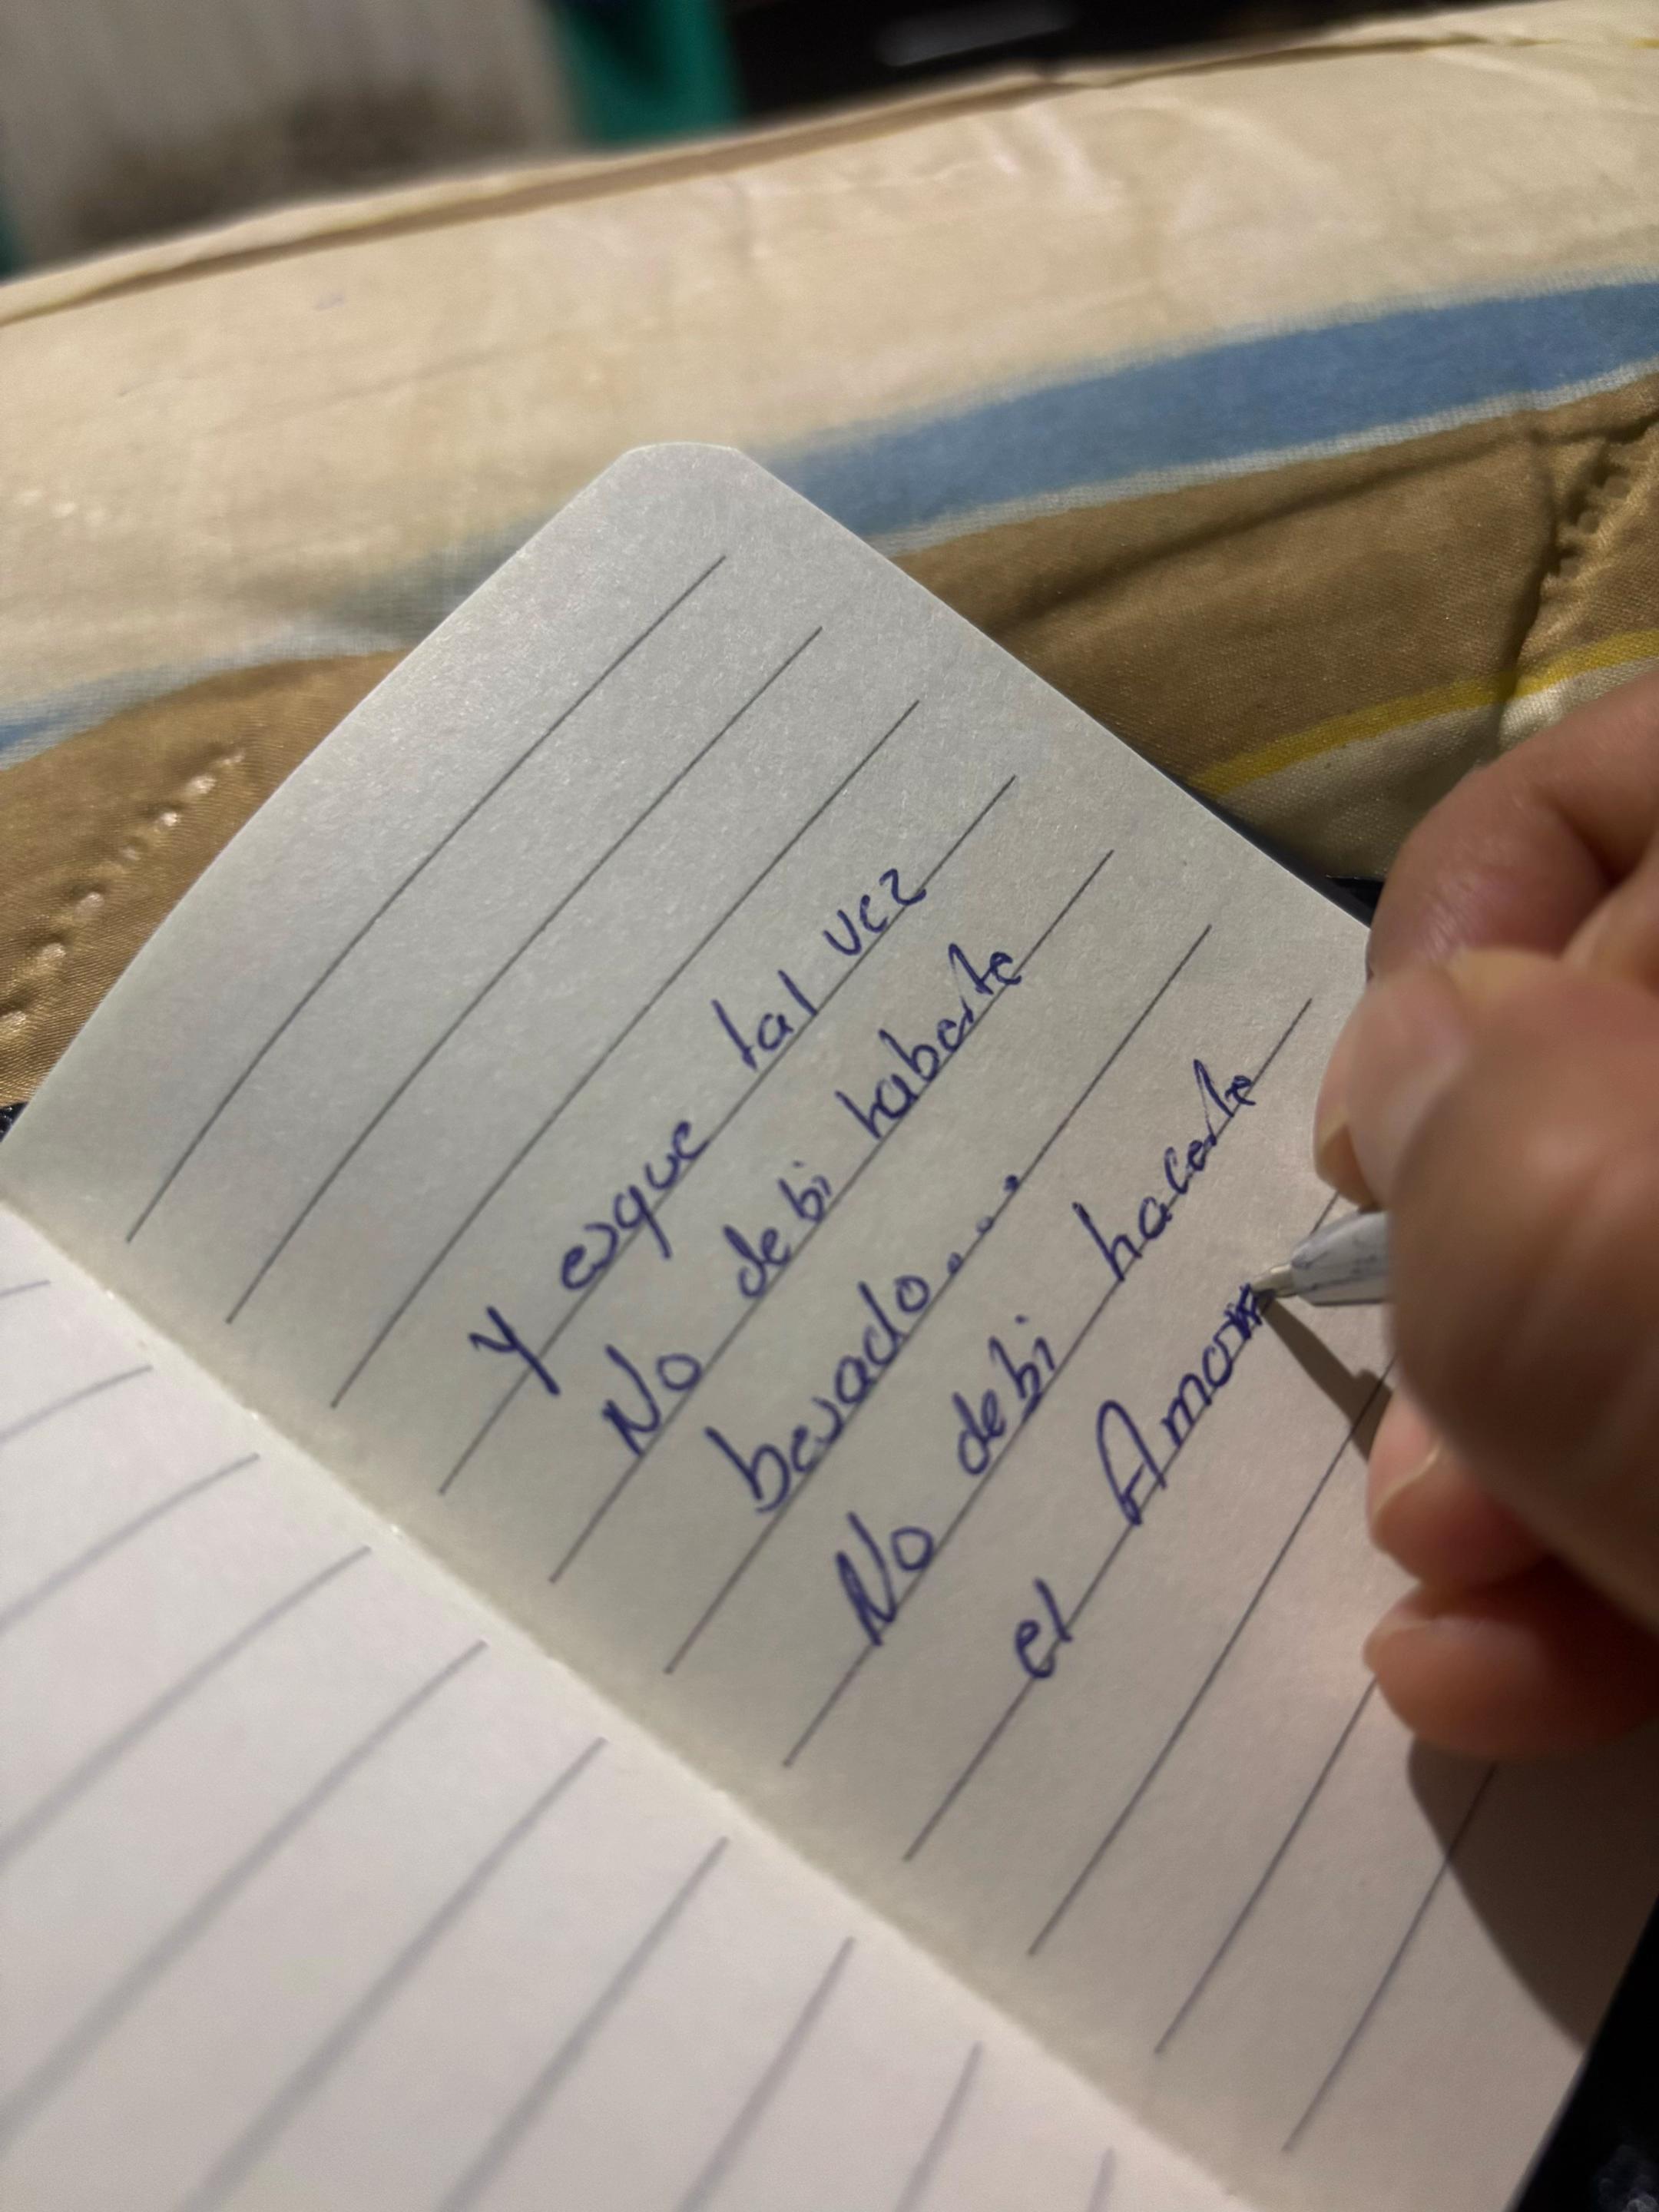 Y esque tal vez
No debi haberte
besado....
No debi hacerte
el Amor